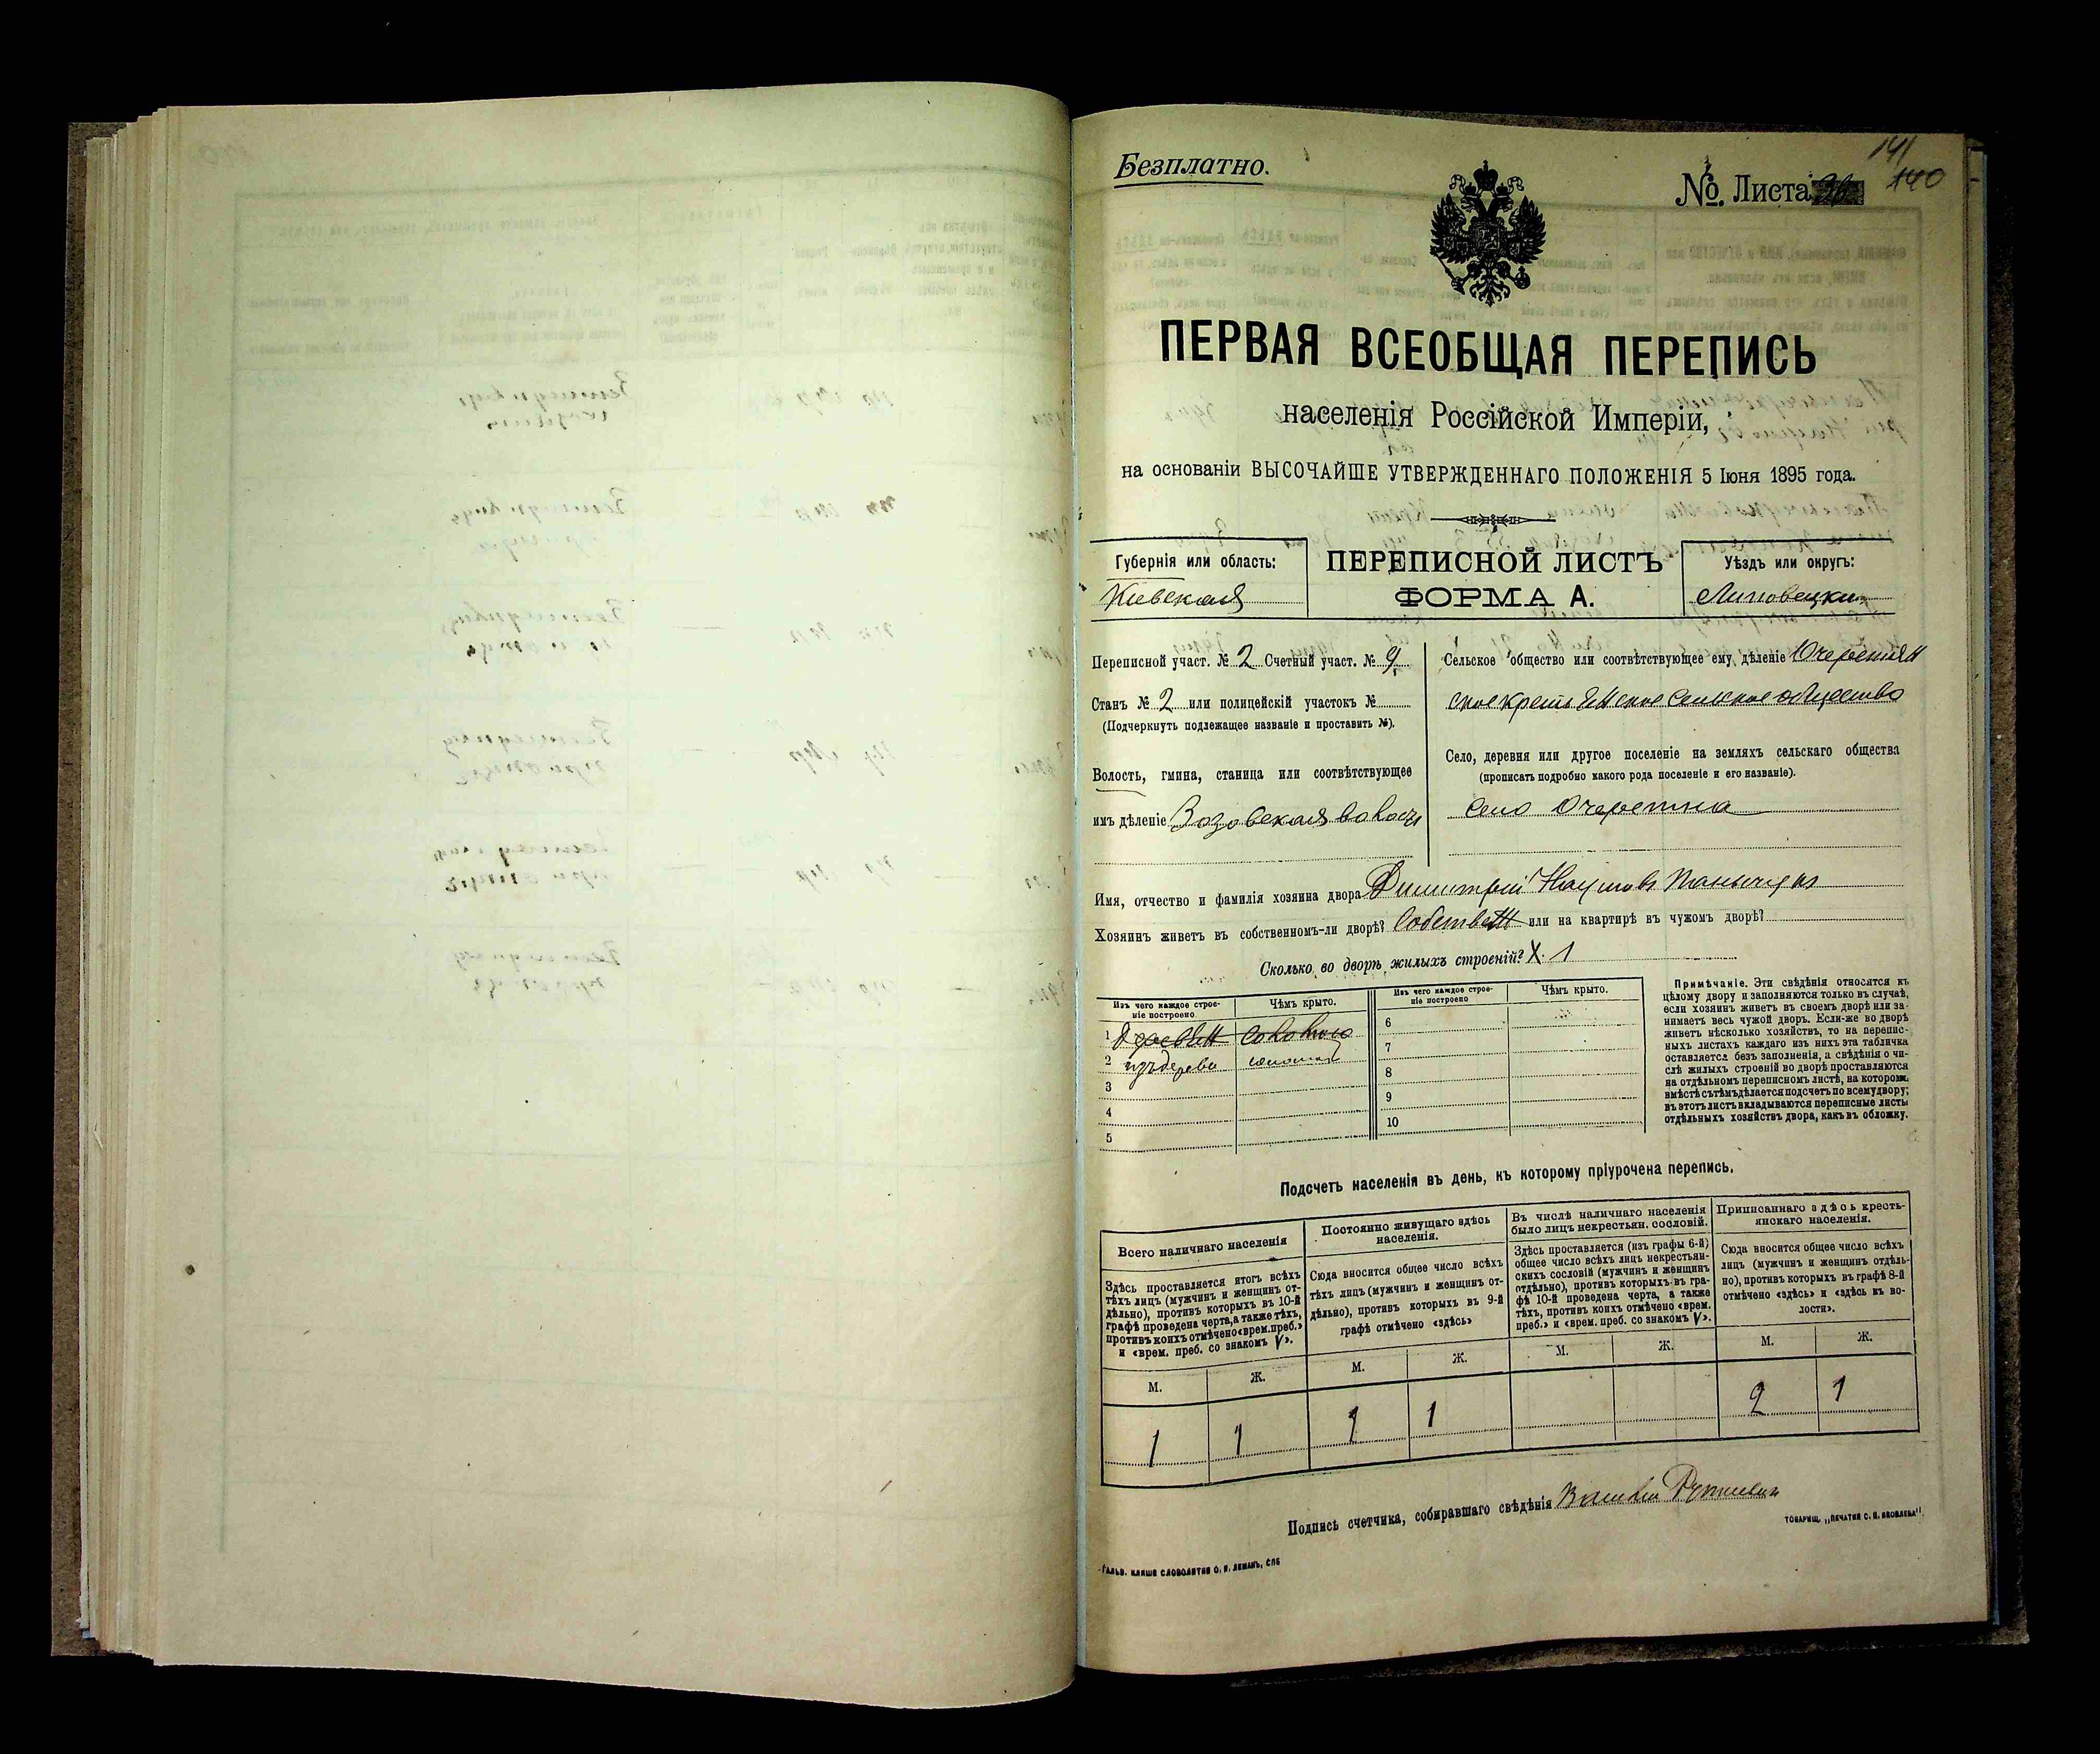 Безплатно.
141
140
№. Листа
ПЕРВАЯ ВСЕОБЩАЯ ПЕРЕПИСЬ
населенія Россійской Имперіи,
на основаніи ВЫСОЧАЙШЕ УТВЕРЖДЕННАГО ПОЛОЖЕНІЯ 5 Іюня 1895 года.
Губернія или область:
Кіевская
ПЕРЕПИСНОЙ ЛИСТЪ
ФОРМА А.
Уѣздъ или округъ:
Липовецкій
Переписной участ. № 2 Счетный участ. № 9
Станъ № 2 или полицейскій участокъ №
(Подчеркнуть подлежащее названіе и проставить №).
Волость, гмина, станица или соотвѣтствующее
имъ дѣленіе Зозовская волость
Сельское общество или соотвѣтствующее ему дѣленіе Очеретян
ское крестьянское сельское общество
Село, деревня или другое поселеніе на земляхъ сельскаго общества
(прописать подробно какого рода поселеніе и его названіе).
село Очеретна
Имя, отчество и фамилія хозяина двора Димитрій Наумовъ
Хозяинъ живетъ въ собственномъ-ли дворѣ? Собствен или на квартирѣ въ чужомъ дворѣ?
Сколько во дворѣ жилыхъ строеній? X. 1
Изъ чего каждое строе-
ніе построено
Чѣмъ крыто.
Изъ чего каждое строе-
ніе построено
Чѣмъ крыто.
1 Деревян соломою
2 изъ дерева соломой
3
4
5
6
7
8
9
10
Примѣчаніе. Эти свѣдѣнія относятся къ
цѣлому двору и заполняются только въ случаѣ,
если хозяинъ живетъ въ своемъ дворѣ или за-
нимаетъ весь чужой дворъ. Если-же во дворѣ
живетъ нѣсколько хозяйствъ, то на перепис-
ныхъ листахъ каждаго изъ нихъ эта табличка
оставляется безъ заполненія, а свѣдѣнія о чи-
слѣ жилыхъ строеній во дворѣ проставляются
на отдѣльномъ переписномъ листѣ, на которомъ
вмѣстѣ съ тѣмъ дѣлается подсчетъ по всему двору;
въ этотъ листъ вкладываются переписные листы
отдѣльныхъ хозяйствъ двора, какъ въ обложку.
Подсчетъ населенія въ день, къ которому пріурочена перепись.
Всего наличнаго населенія
Здѣсь проставляется итогъ всѣхъ
тѣхъ лицъ (мужчинъ и женщинъ от-
дѣльно), противъ которыхъ въ 10-й
графѣ проведена черта, а также тѣхъ,
противъ коихъ отмѣчено «врем. преб.»
и «врем. преб. со знакомъ V».
Постоянно живущаго здѣсь
населенія.
Сюда вносится общее число всѣхъ
тѣхъ лицъ (мужчинъ и женщинъ от-
дѣльно), противъ которыхъ въ 9-й
графѣ отмѣчено «здѣсь»
Въ числѣ наличнаго населенія
было лицъ некрестьян. сословій.
Здѣсь проставляется (изъ графы 6-й)
общее число всѣхъ лицъ некрестьян-
скихъ сословій (мужчинъ и женщинъ
отдѣльно), противъ которыхъ въ гра-
фѣ 10-й проведена черта, а также
тѣхъ, противъ коихъ отмѣчено «врем.
преб.» и «врем. преб. со знакомъ V».
Приписаннаго здѣсь кресть-
янскаго населенія.
Сюда вносится общее число всѣхъ
лицъ (мужчинъ и женщинъ отдѣль-
но), противъ которыхъ въ графѣ 8-й
отмѣчено «здѣсь» и «здѣсь къ во-
лости».
М. Ж. М. Ж. М. Ж. М. Ж.
1 1 1 1 2 1
Подпись счетчика, собиравшаго свѣдѣнія
ТОВАРИЩ. „ПЕЧАТНЯ С. П. ЯКОВЛЕВА"
ГАЛЬВ. КЛИШЕ СЛОВОЛИТНИ О. И. ЛЕМАНЪ, СПБ